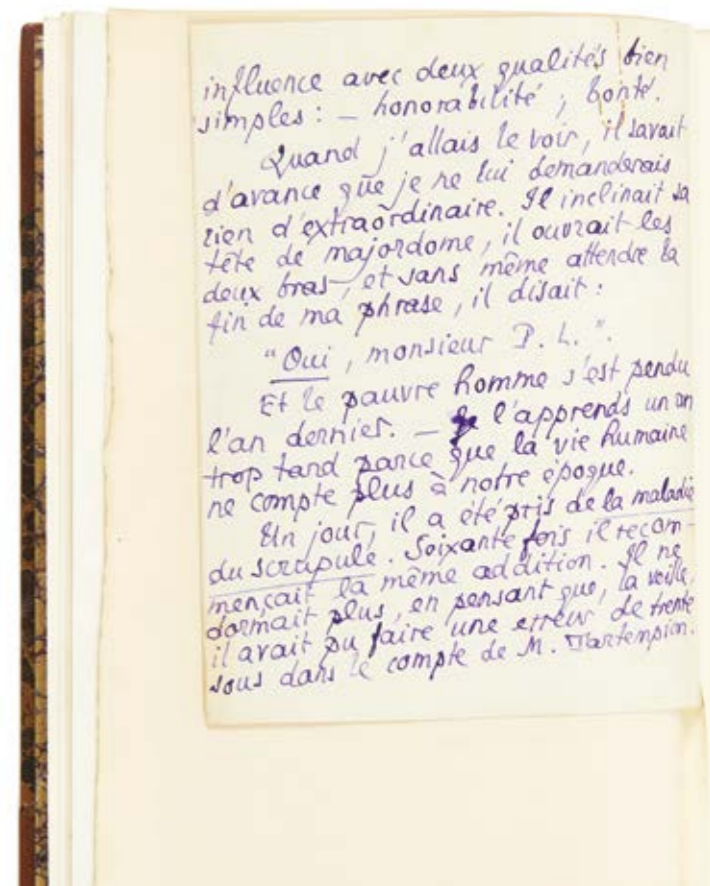 influence avec deux qualités bien
simples : — honorabilité ; bonté.
Quand j'allais le voir, il savait
d'avance que je ne lui demanderais
rien d'extraordinaire. Il inclinait sa
tête de majordome, il ouvrait les
deux bras, et sans même attendre la
fin de ma phrase, il disait :
"Oui, monsieur P. L.".
Et le pauvre homme s'est pendu
l'an dernier. — Je l'apprends un an
trop tard parce que la vie humaine
ne compte plus à notre époque.
Un jour, il a été pris de la maladie
du scrupule. Soixante fois il recom-
mençait la même addition. Il ne
dormait plus, en pensant que, la veille,
il avait pu faire une erreur de trente
sous dans le compte de M. Tartempion.